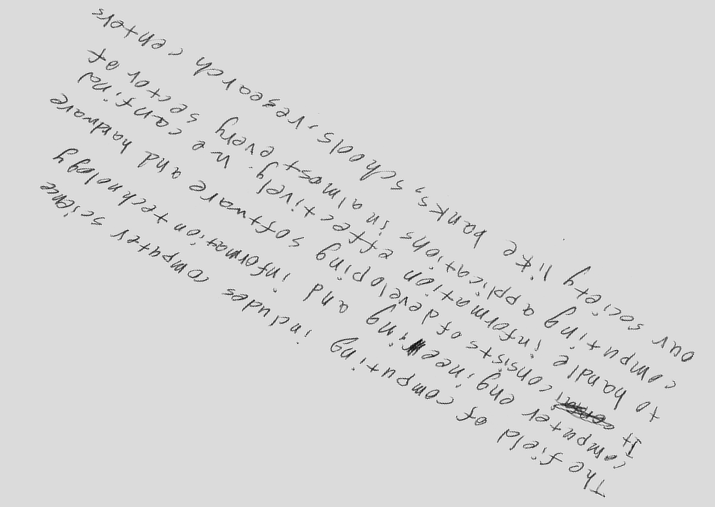 The field of computing includes computer science
computer engineering and information technology
It consists of developing software and hardware
to handle information effectively. We can find
computing applications in almost every sector of
our society like banks, schools, research centers